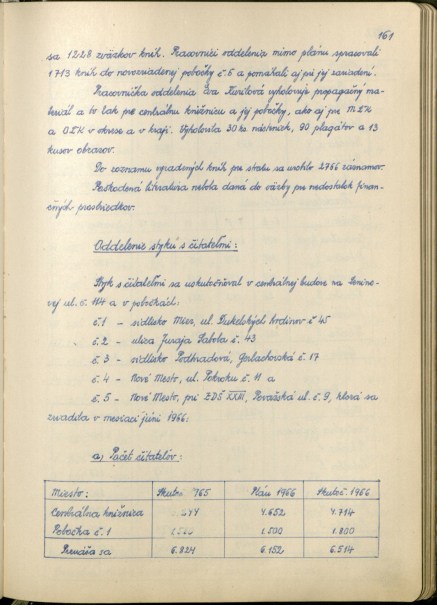 161
sa 1228 zväzkov kníh. Pracovníci oddelenia mimo plánu spracovali
1713 kníh do novozriadenej pobočky č. 5 a pomáhali aj pri jej zariadení.
Pracovníčka oddelenia Eva zhotovuje propagačný ma-
teriál a to tak pre centrálnu knižnicu a jej pobočky, ako aj pre MĽK
a OĽK v okrese a v kraji. Vyhotovila 30 ks násteniek, 90 plagátov a 13
kusov obrazov.
Do zoznamu vyradených kníh pre stratu sa urobilo 2766 záznamov.
Poškodená literatúra nebola daná do väzby pre nedostatok finan-
čných prostriedkov.
Oddelenie styku s čitateľmi:
Styk s čitateľmi sa uskutočňoval v centrálnej budove na Lenino-
vej ul. č. 114 a v pobočkách:
č. 1 - sídlisko Mier, ul. Dukelských hrdinov č 45
č. 2 - ulica Juraja Sabola č. 43
č. 3 - sídlisko Podhradová, Gerlachovská č. 17
č. 4 - Nové Mesto, ul. Pokroku č. 11 a
č. 5 - Nové Mesto, pri ZDŠ XXIII, Považská ul. č. 9, ktorá sa
zriadila v mesiaci júni 1966:
a) Počet čitateľov:
Miesto: Skutoč. 965 Plán 1966 Skutoč. 1966
Centrálna knižnica 4.652 4.714
Pobočka č. 1 1.500 1.800
Prenáša sa 6.824 6.152 6.514